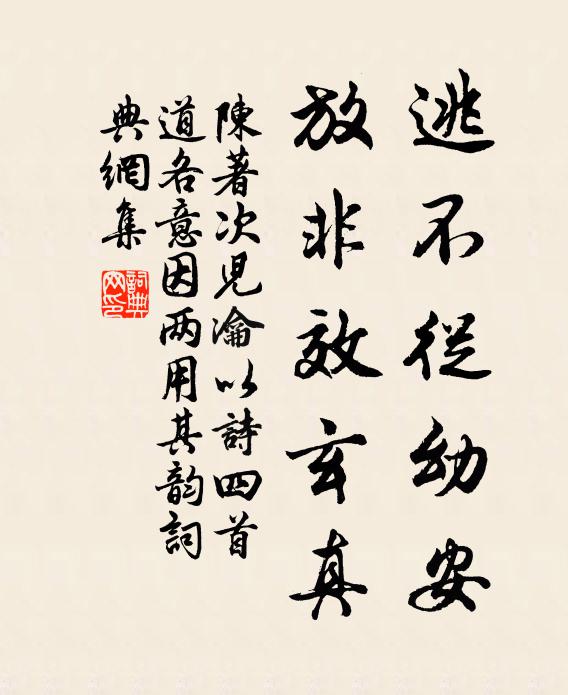 逃不從幼安
放非效玄真
陳著次兒瀹以詩四首
道各意因两用其韵詞
典網集
詞典網印